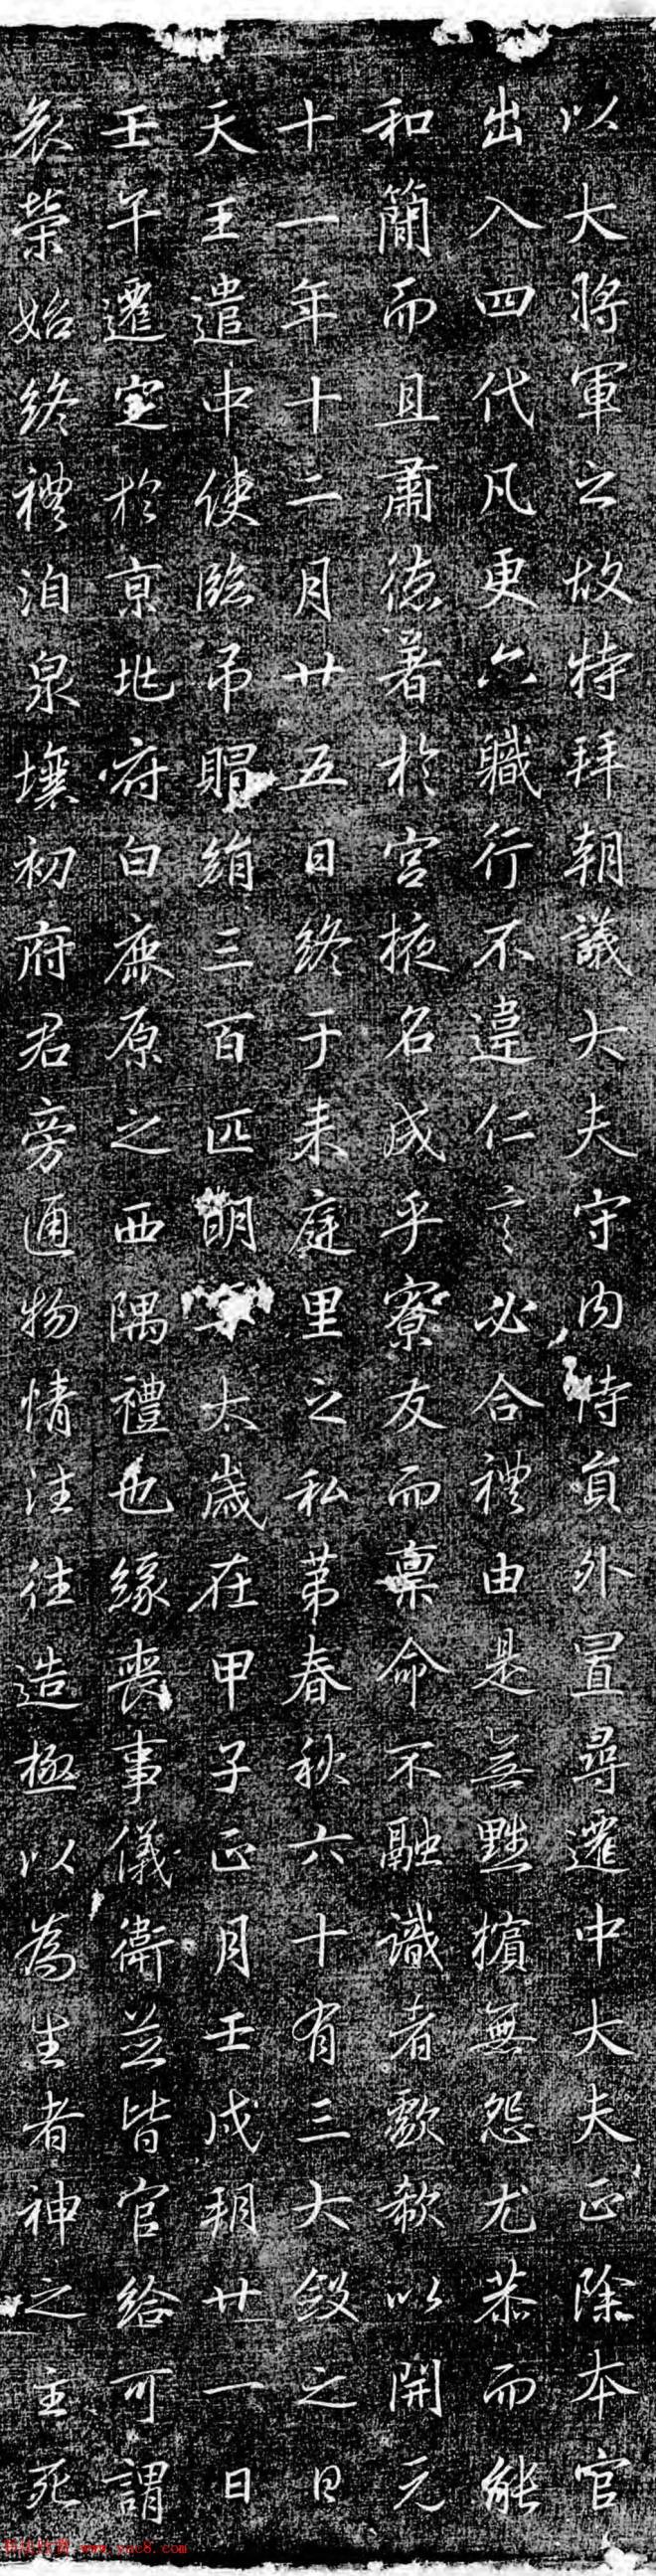 以大將軍之故特拜朝議大夫守內侍員外置尋遷中大夫正除本官
出入四代凡更六職行不違仁言必合禮由是無黜擯無怨尤恭而能
和簡而且肅德著於宮掖名成乎寮友而稟命不融識者歔欷以開元
十一年十二月廿五日終于来庭里之私第春秋六十有三大殮之日
天王遣中使臨吊賜絹三百匹明年太歲在甲子正月壬戌朔廿一日
壬午遷定於京兆府白鹿原之西隅禮也緣喪事儀衛並皆官給可謂
哀榮始終禮洎泉壤初府君旁通物情注往造極以為生者神之主死